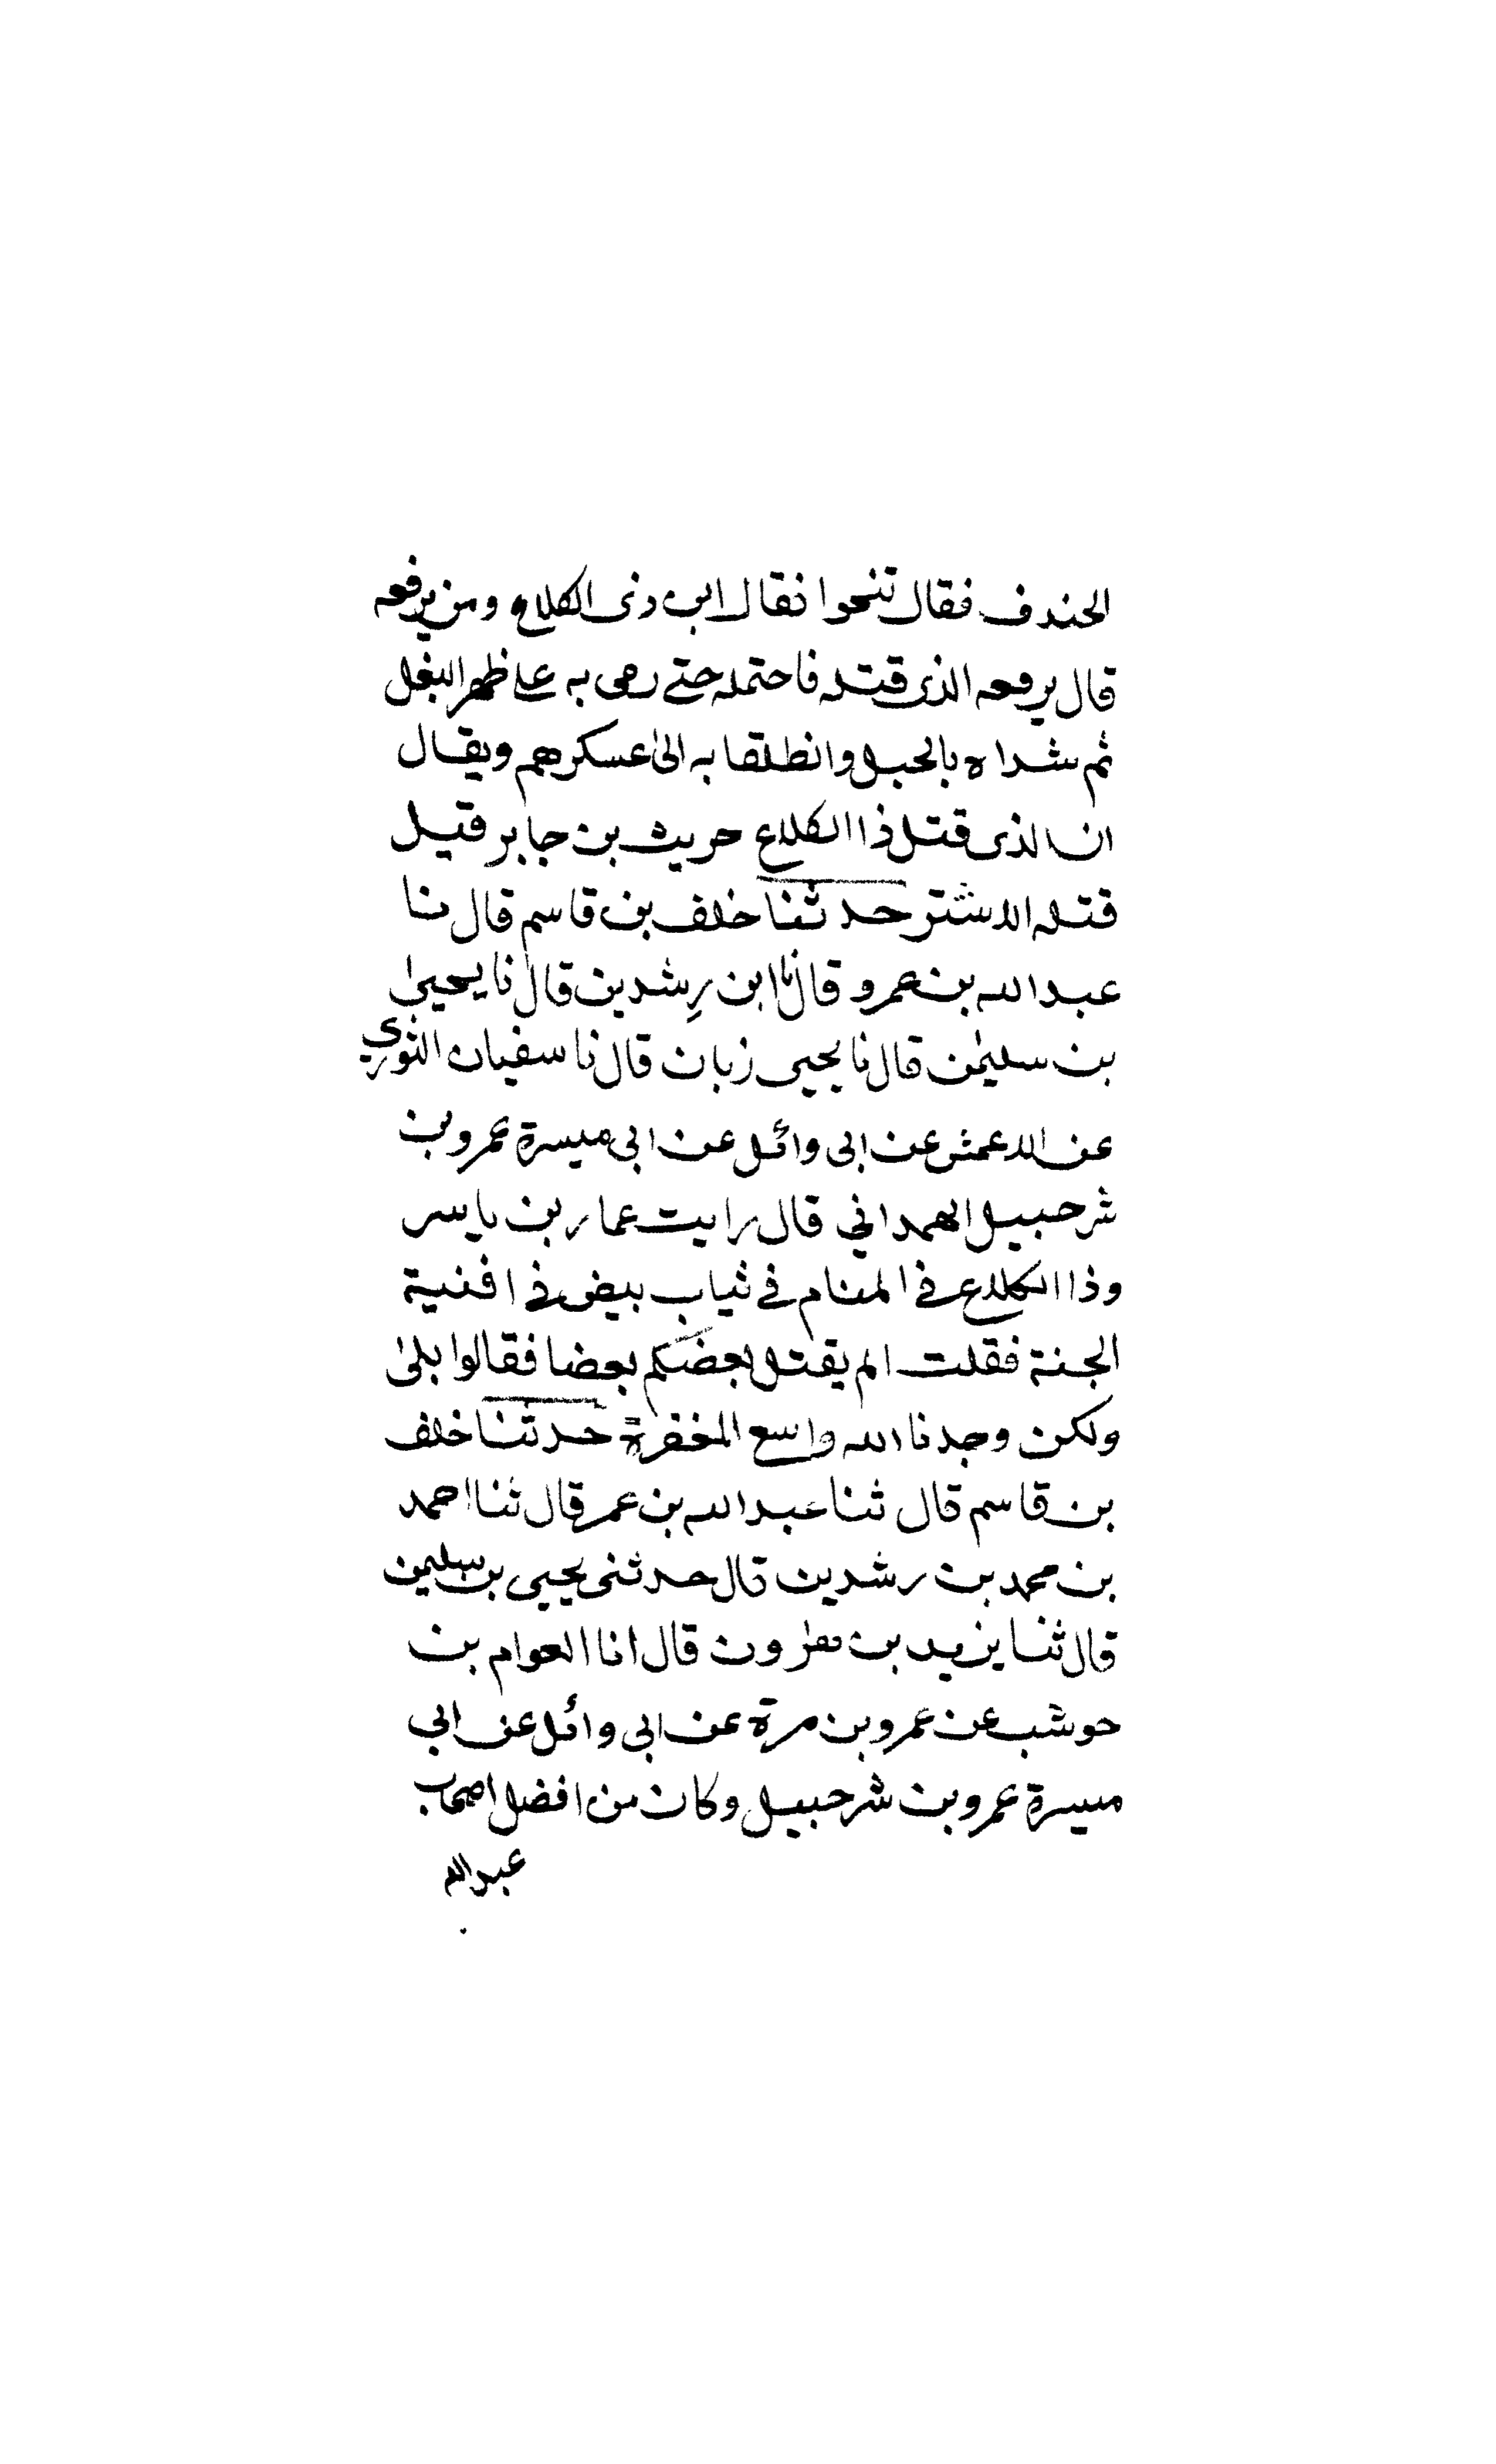 الخندف فقال تنحوا فقال ابن ذى الكلاع ومن يرفعه
قال يرفعه الذى قتله فاحتمله حتى رمى به على ظهر البغل
ثم شداه بالحبل وانطلقا به الى عسكرهم ويقال
ان الذى قتل ذا الكلاع حريث بن جابر قيل
قتله الاشتر حدثنا خلف بن قاسم قال نا
عبد الله بن عمرو قال نا ابن رشدين قال نا يحيى
بن سليمن قال نا يحيى زبان قال نا سفيان الثوري
عن الاعمش عن ابى وائل عن ابي ميسرة عمرو بن
شرحبيل الهمداني قال رايت عمار بن ياسر
وذا الكلاع في المنام في ثياب بيض في افنية
الجنة فقلت الم يقتل بعضكم بعضا فقالوا بلى
ولكن وجدنا الله واسع المغفرة حدثنا خلف
بن قاسم قال ثنا عبد الله بن عمر قال ثنا احمد
بن محمد بن رشدين قال حدثنى يحيى بن سليمن
قال ثنا يزيد بن هرون قال انا العوام بن
حوشب عن عمرو بن مرة عن ابى وائل عن ابي
ميسرة عمرو بن شرحبيل وكان من افضل اصحاب
عبد الله